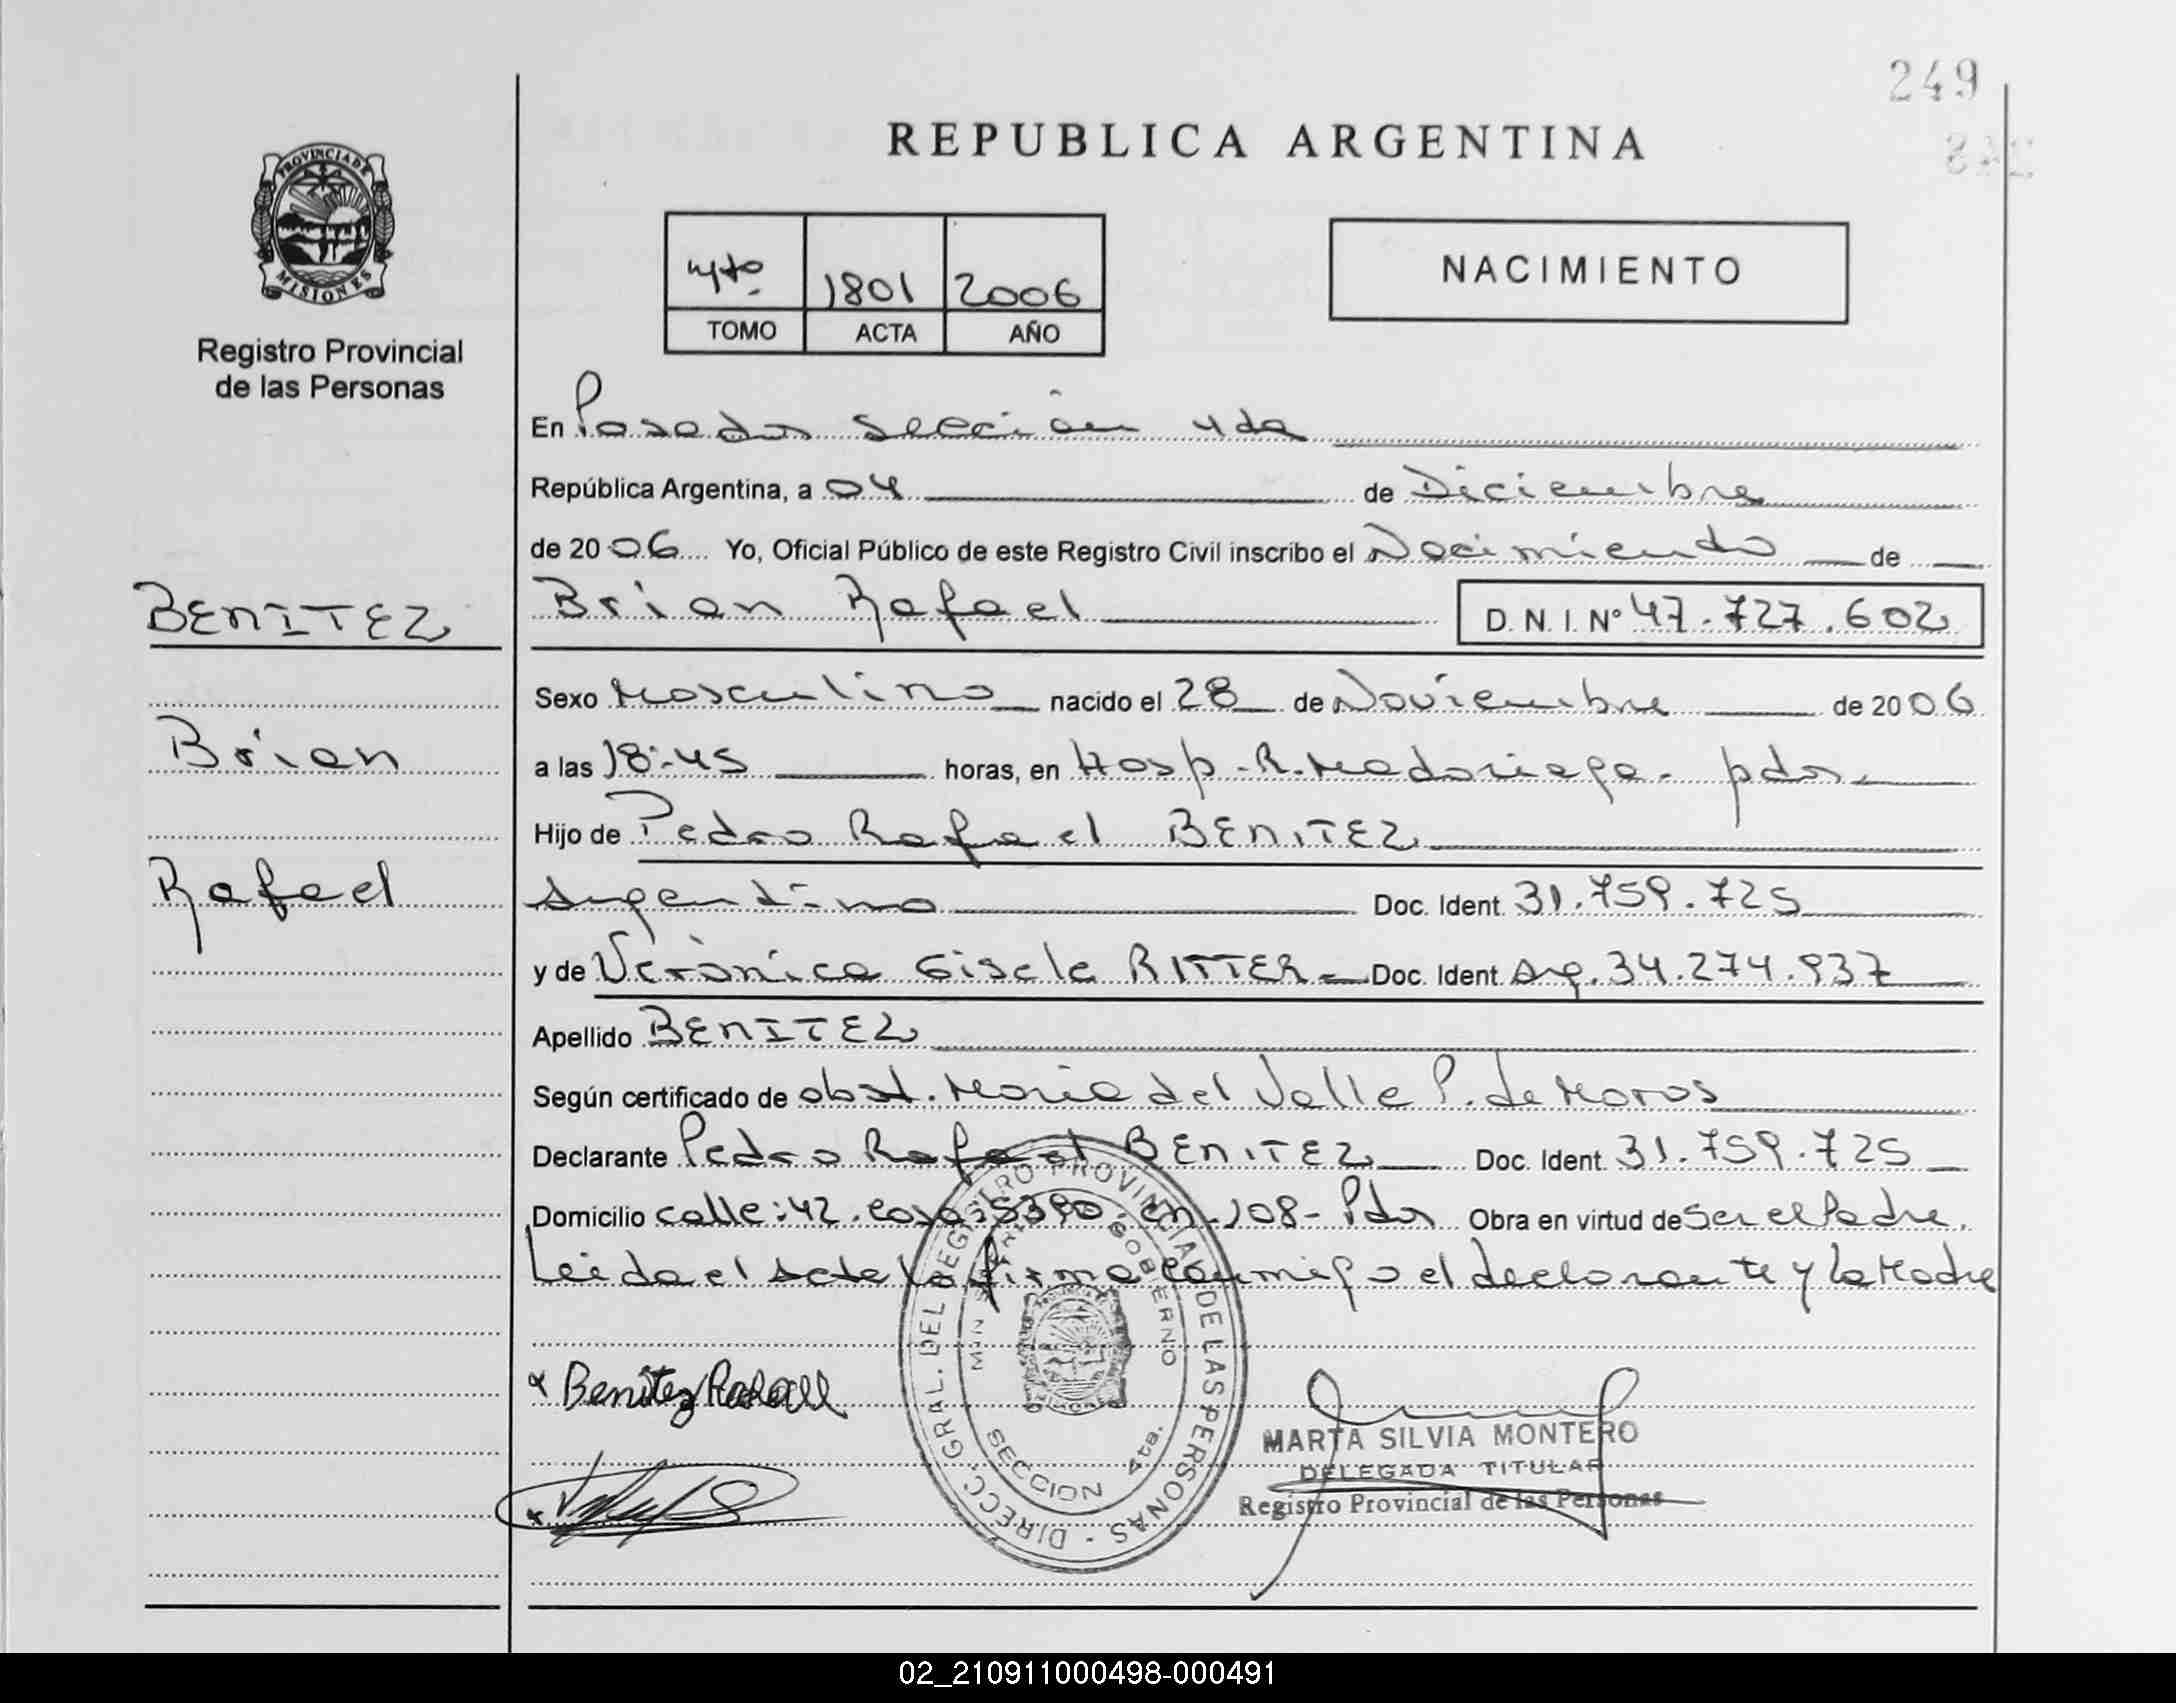 249
REPUBLICA ARGENTINA
PROVINCIA DE
MISIONES
Registro Provincial
de las Personas
4to 1801 2006
TOMO ACTA AÑO
NACIMIENTO
En Posadas Sección 4ta
República Argentina, a 04 de Diciembre
de 2006 Yo, Oficial Público de este Registro Civil inscribo el Nacimiento de
BENITEZ
Brian
Rafael
Brian Rafael D. N. I. Nº 47.727.602
Sexo Masculino nacido el 28 de Noviembre de 2006
a las 18:45 horas, en Hosp. R. Madariaga. pdas
Hijo de Pedro Rafael BENITEZ
Argentino Doc. Ident. 31.759.725
y de Verónica Gisela RITTER Doc. Ident. Arg. 34.274.937
Apellido BENITEZ
Según certificado de obst. Maria del Valle P. de Moros
Declarante Pedro Rafael BENITEZ Doc. Ident. 31.759.725
Domicilio calle: 42. casa: 5390 Ch. 108- Pdas Obra en virtud de Ser el Padre.
Leida el Acta la firma conmigo el declarante y la Madre
x Benitez Rafaell
DIRECC. GRAL. DEL REGISTRO PROVINCIAL DE LAS PERSONAS
MINISTERIO GOBIERNO
SECCION 4ta.
MARTA SILVIA MONTERO
DELEGADA TITULAR
Registro Provincial de las Personas
02_210911000498-000491